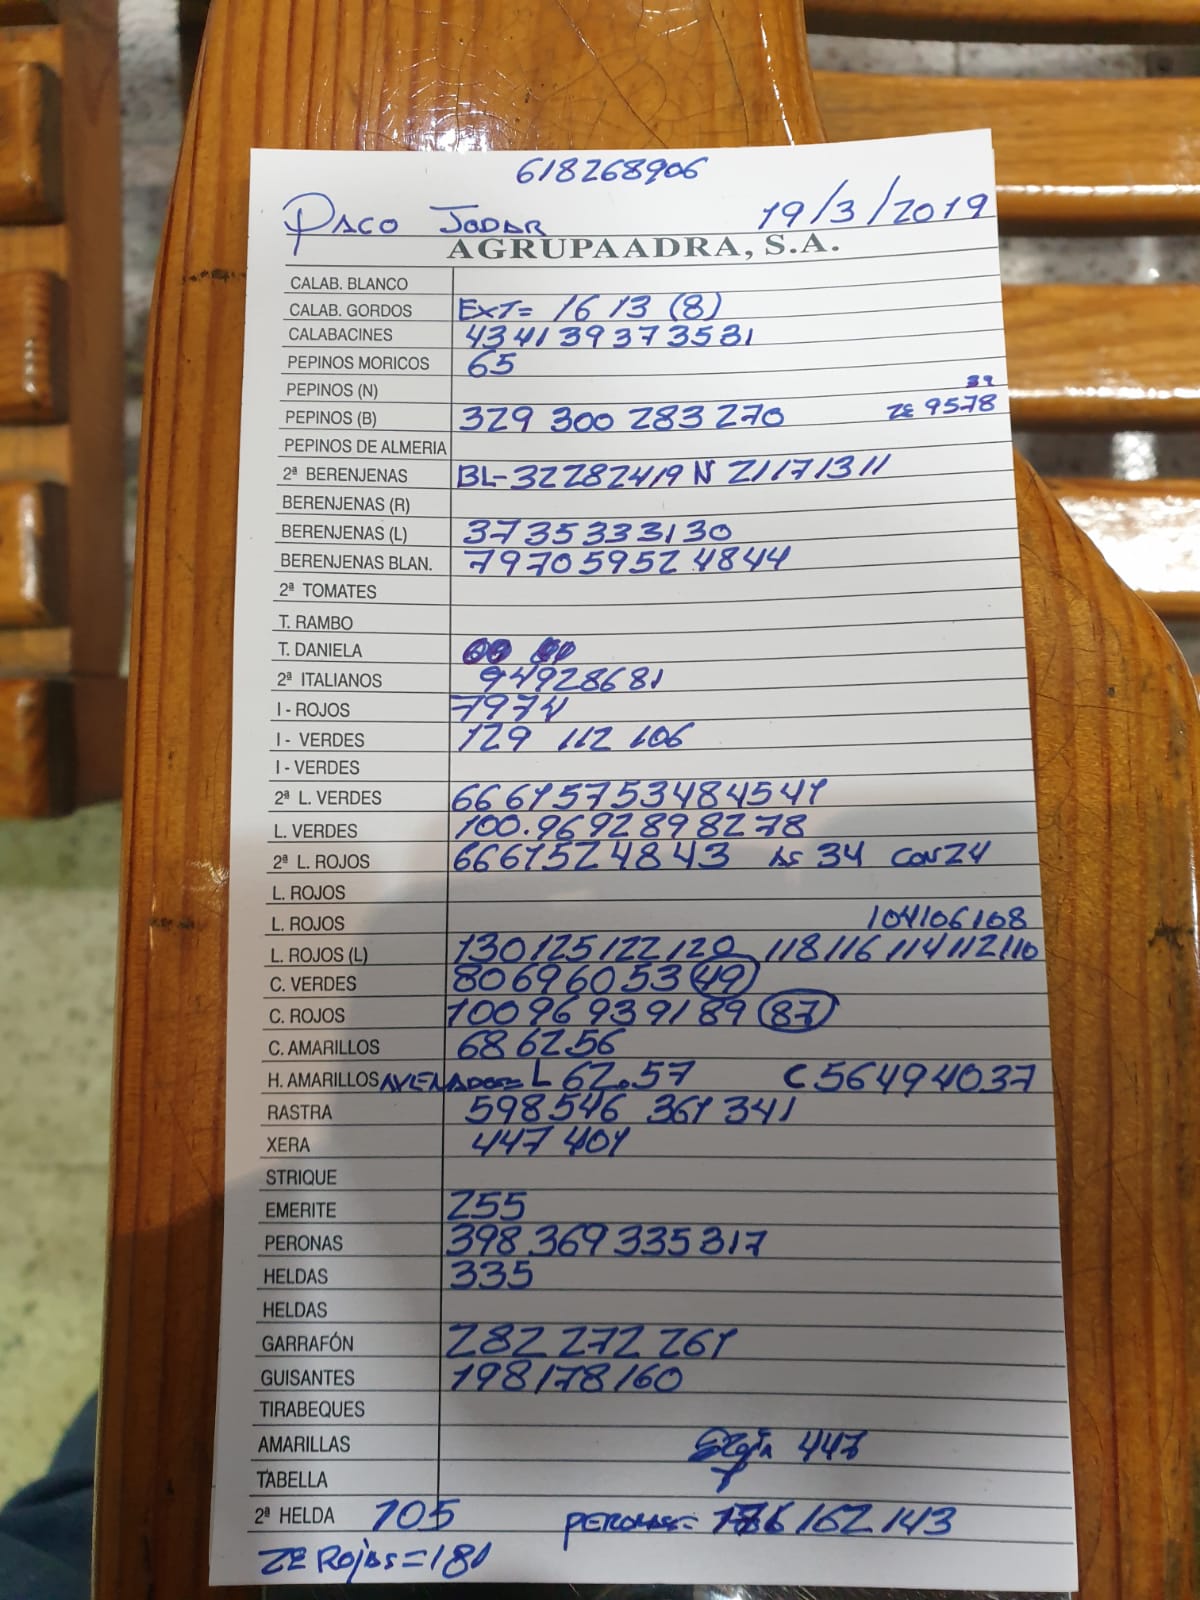 618268906
PACO JODAR 19/3/2019
AGRUPAADRA, S.A.
CALAB. BLANCO
CALAB. GORDOS EXT= 16 13 (8)
CALABACINES 43 41 39 37 35 31
PEPINOS MORICOS 65
PEPINOS (N) 39
PEPINOS (B) 329 300 283 270 ZE 95 78
PEPINOS DE ALMERIA
2ª BERENJENAS BL-32 28 24 19 N 21 17 13 11
BERENJENAS (R)
BERENJENAS (L) 37 35 33 31 30
BERENJENAS BLAN. 79 70 59 52 48 44
2ª TOMATES
T. RAMBO
T. DANIELA
2ª ITALIANOS 94 92 86 81
I - ROJOS 79 74
I - VERDES 129 112 106
I - VERDES
2ª L. VERDES 66 61 57 53 48 45 41
L. VERDES 100. 96 92 89 82 78
2ª L. ROJOS 66 61 52 48 43 34 CON 24
L. ROJOS
L. ROJOS 104 106 108
L. ROJOS (L) 130 125 122 120 118 116 114 112 110
C. VERDES 80 69 60 53 (49)
C. ROJOS 100 96 93 91 89 (87)
C. AMARILLOS 68 62 56
H. AMARILLOS L 62.57 C 56 49 40 37
RASTRA 598 546 361 341
XERA 447 401
STRIQUE
EMERITE 255
PERONAS 398 369 335 317
HELDAS 335
HELDAS
GARRAFÓN 282 272 261
GUISANTES 198 178 160
TIRABEQUES
AMARILLAS 447
TABELLA
2ª HELDA 105 PERONAS= 162 143
ZE ROJAS=181